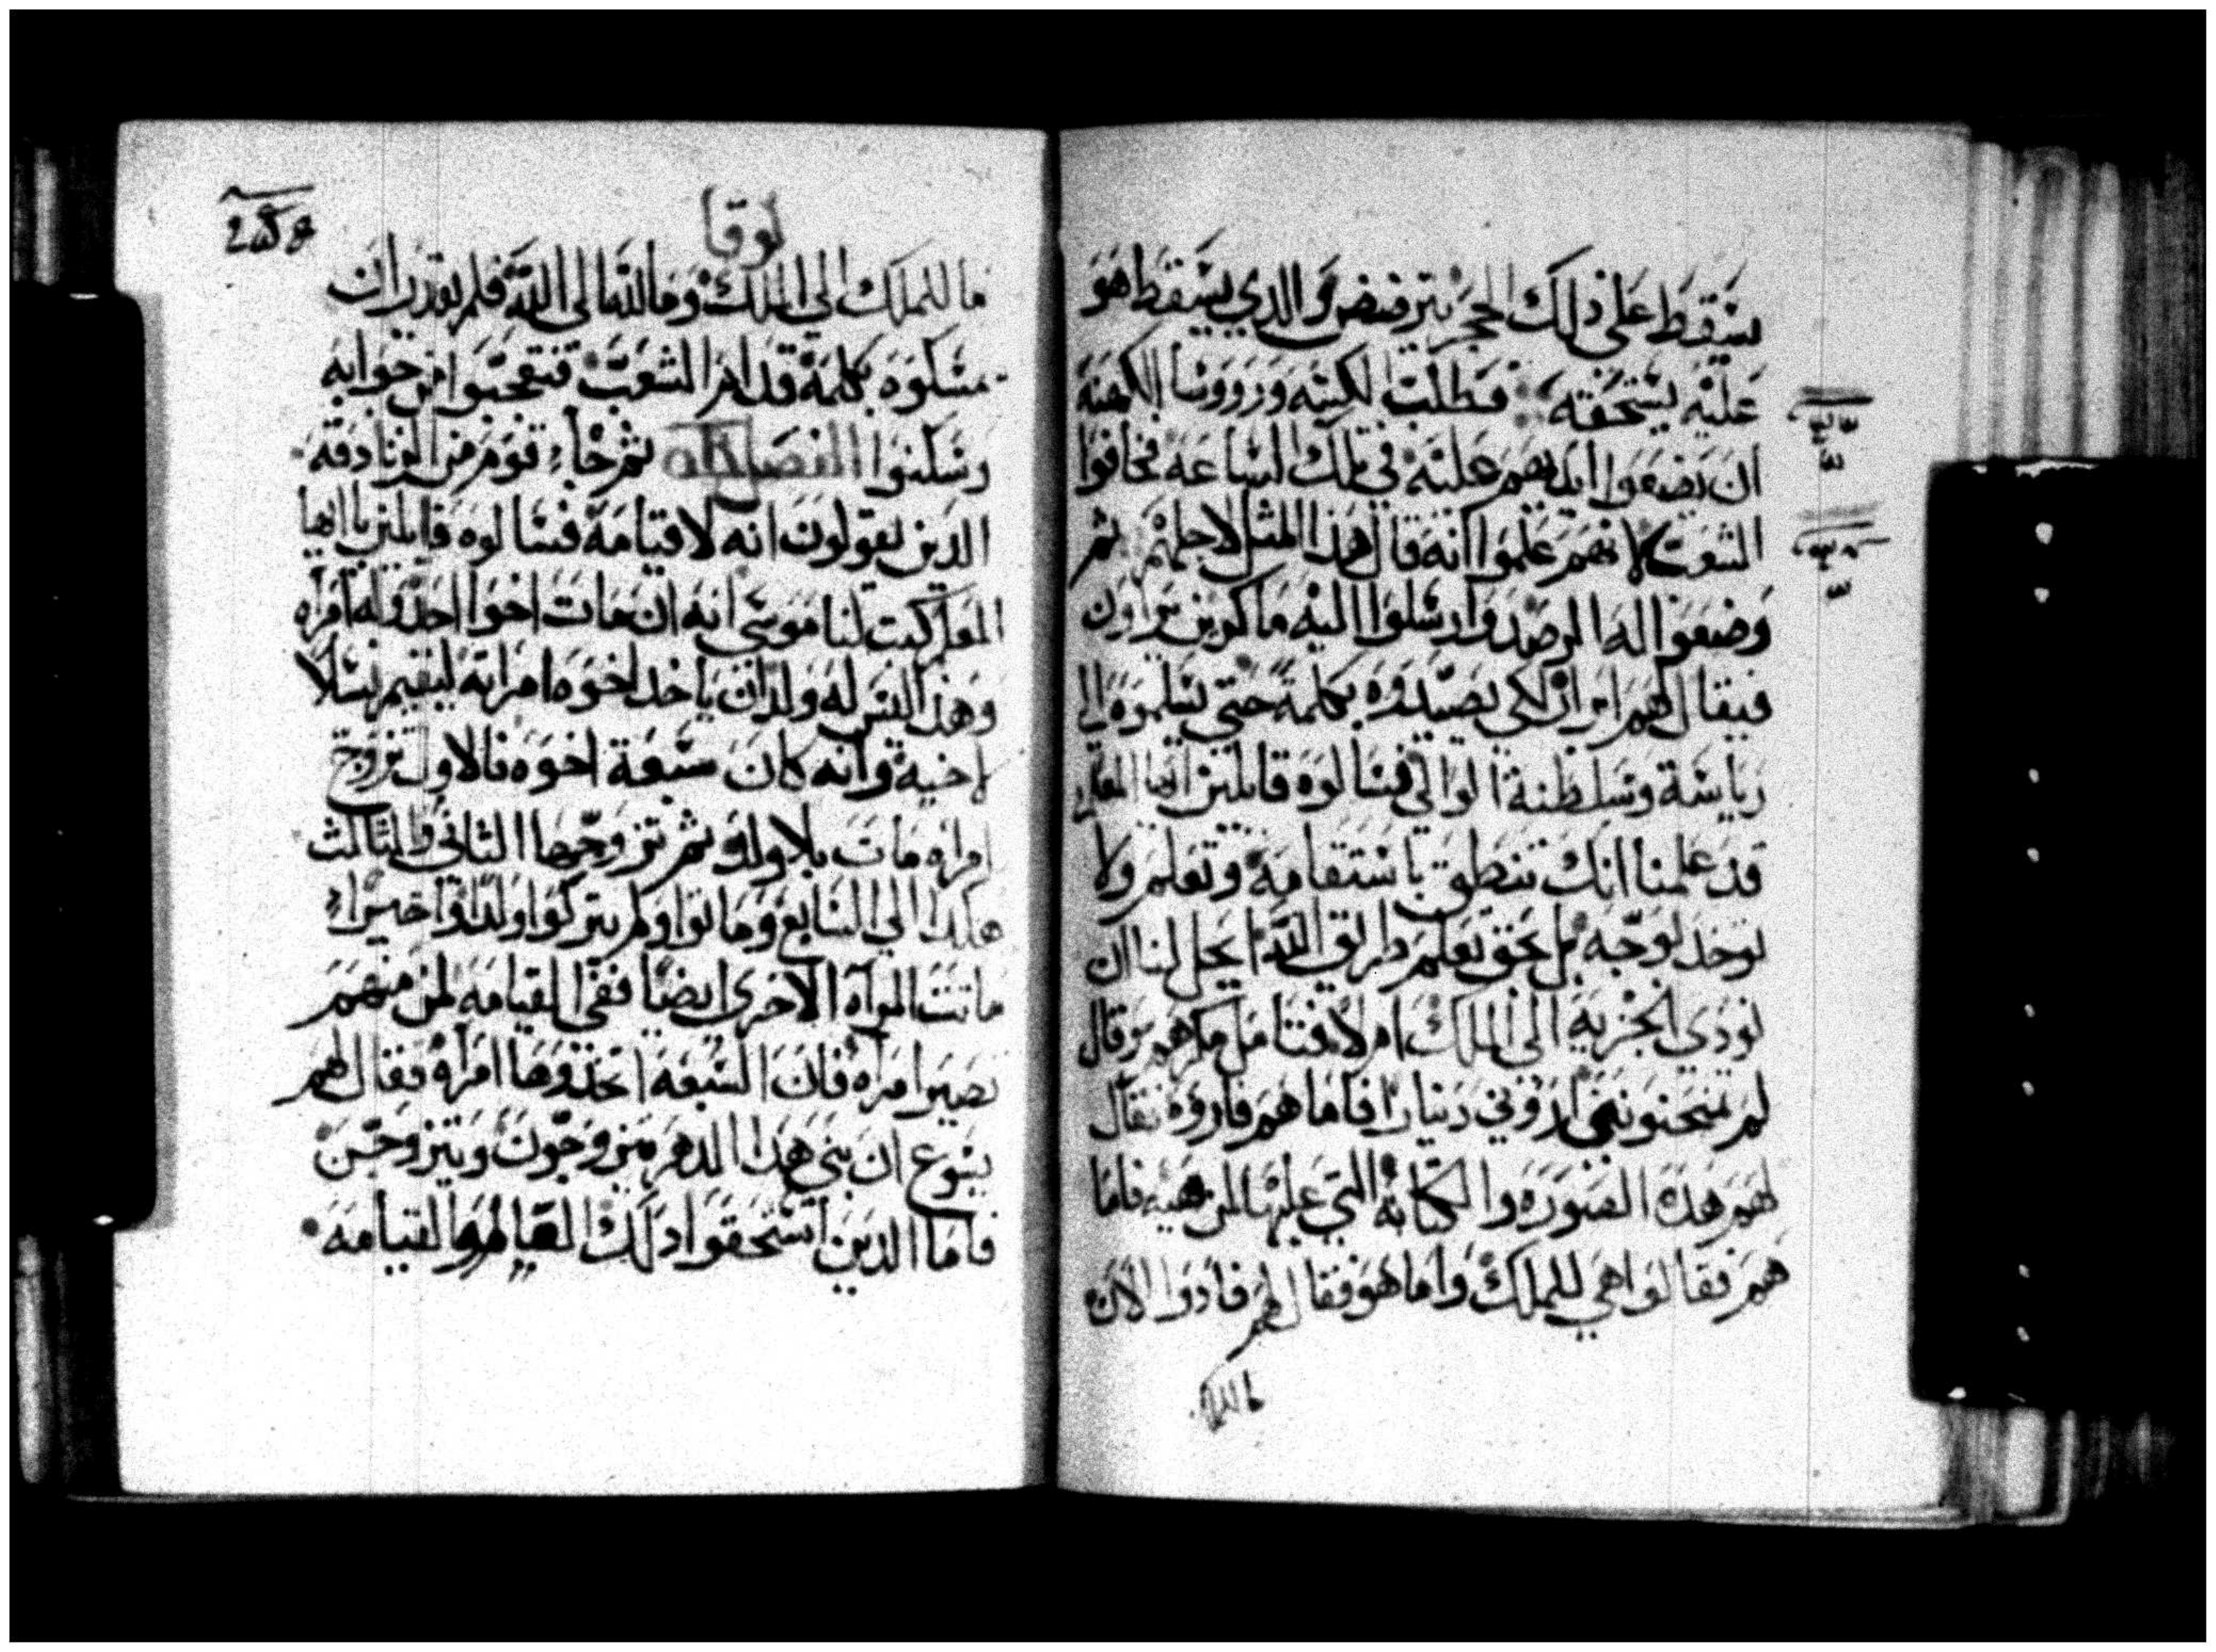 يسقط على ذلك الحجر يترضض والدي يسقط هو
عليه يسحقه فطلبت الكتبه وروووسا الكهنة
ان يضعوا ايديهم عليه في تلك الساعة فخافوا
الشعب لانهم علموا انه قال هذا المثل لاجلهم ثم
وضعوا له الرصد وارسلوا اليه ماكرين يراون
فيقال لهم ابرار لكى يصيدوه بكلمة حتى يسلموه الى
رياسة وسلطنة الوالي فسالوه قائلين ايها المعلم
قد علمنا انك تنطق باستقامة وتعلم ولا
توخد لوجه بل بحق تعلم طريق الله ايحل لنا ان
نودي الجزية الى الملك ام لا فتامل مكرهم وقال
لم تمتحنونني اروني دينارا فاما هم فاروه فقال
لهم هذه الصورة والكتابة التي عليها لمن هيه فاما
هم فقالوا هي للملك واما هو فقال لهم فادوا الان
ما للملك
لوقا
ما للملك الى الملك وما لله الى الله فلم يقدر ان
يمسكوه بكلمة قدام الشعب فتعجبوا من جوابه
وسكتوا الفصل ثم جاء قوم من الزنادقة
الدين يقولون انه لا قيامة فسالوه قايلين يا ايها
المعلم كتب لنا موسى انه ان مات اخوا احد وله امراه
وهذا ليس له ولد ان ياخد اخوه امراته ليقيم نسلا
لاخيه وانه كان سبعة اخوه فالاول تزوج
امراه مات بلا ولد ثم تزوجها الثاني والثالث
هكدا الى السابع وماتوا ولم يتركوا ولدا واخيرا
ماتت المراه الاخرى ايضا ففي القيامه لمن منهم
تصير امراه فان السبعة اتخذوها امراة فقال لهم
يسوع ان بني هذا الدهر يتزوجون ويتزوجن
فاما الدين استحقوا دلك العالم والقيامة